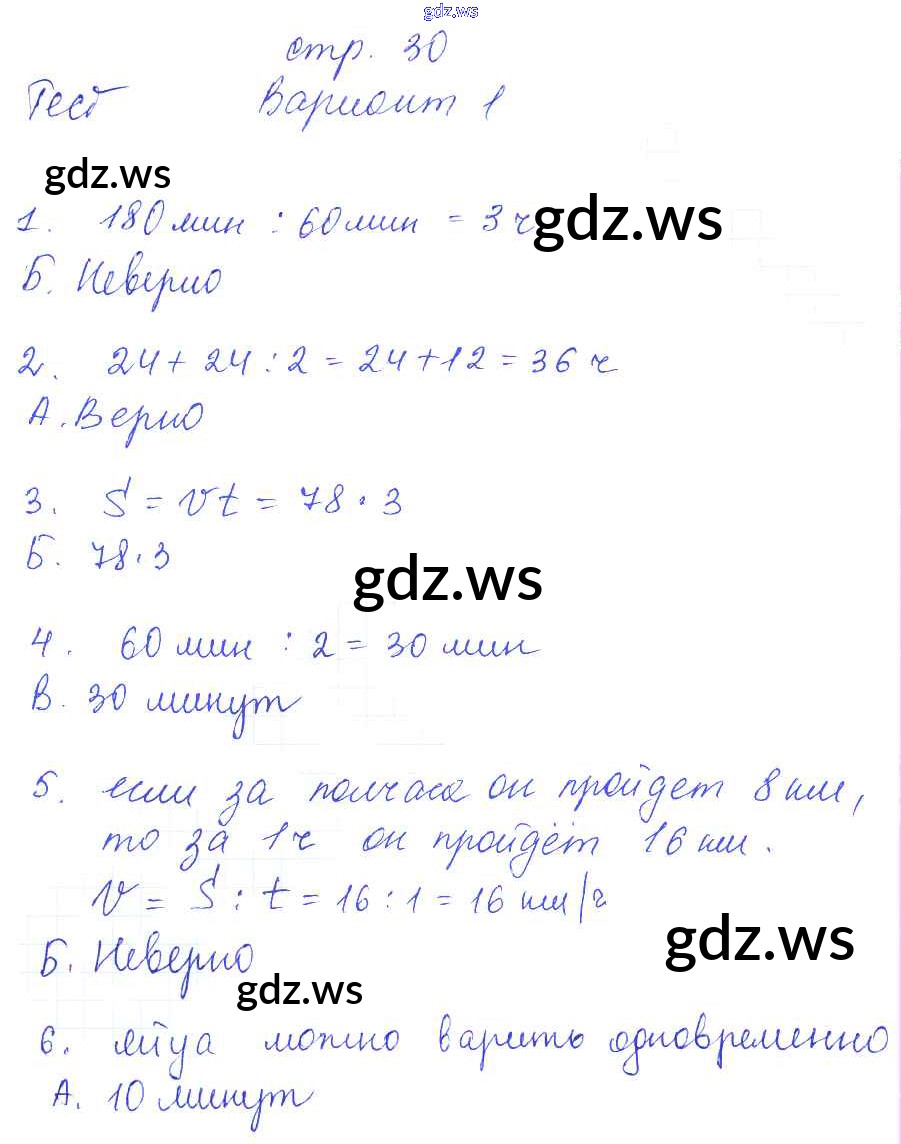 gdz.ws
стр. 30
Тест Вариант 1
gdz.ws
1. 180 мин : 60 мин = 3 ч
gdz.ws
Б. Неверно
2. 24 + 24 : 2 = 24 + 12 = 36 ч
А. Верно
3. S = vt = 78 · 3
Б. 78 · 3
gdz.ws
4. 60 мин : 2 = 30 мин
В. 30 минут
5. если за полчаса он пройдет 8 км,
то за 1 ч он пройдёт 16 км.
V = S : t = 16 : 1 = 16 км/ч
gdz.ws
Б. Неверно
gdz.ws
6. яйца можно варить одновременно
А. 10 минут